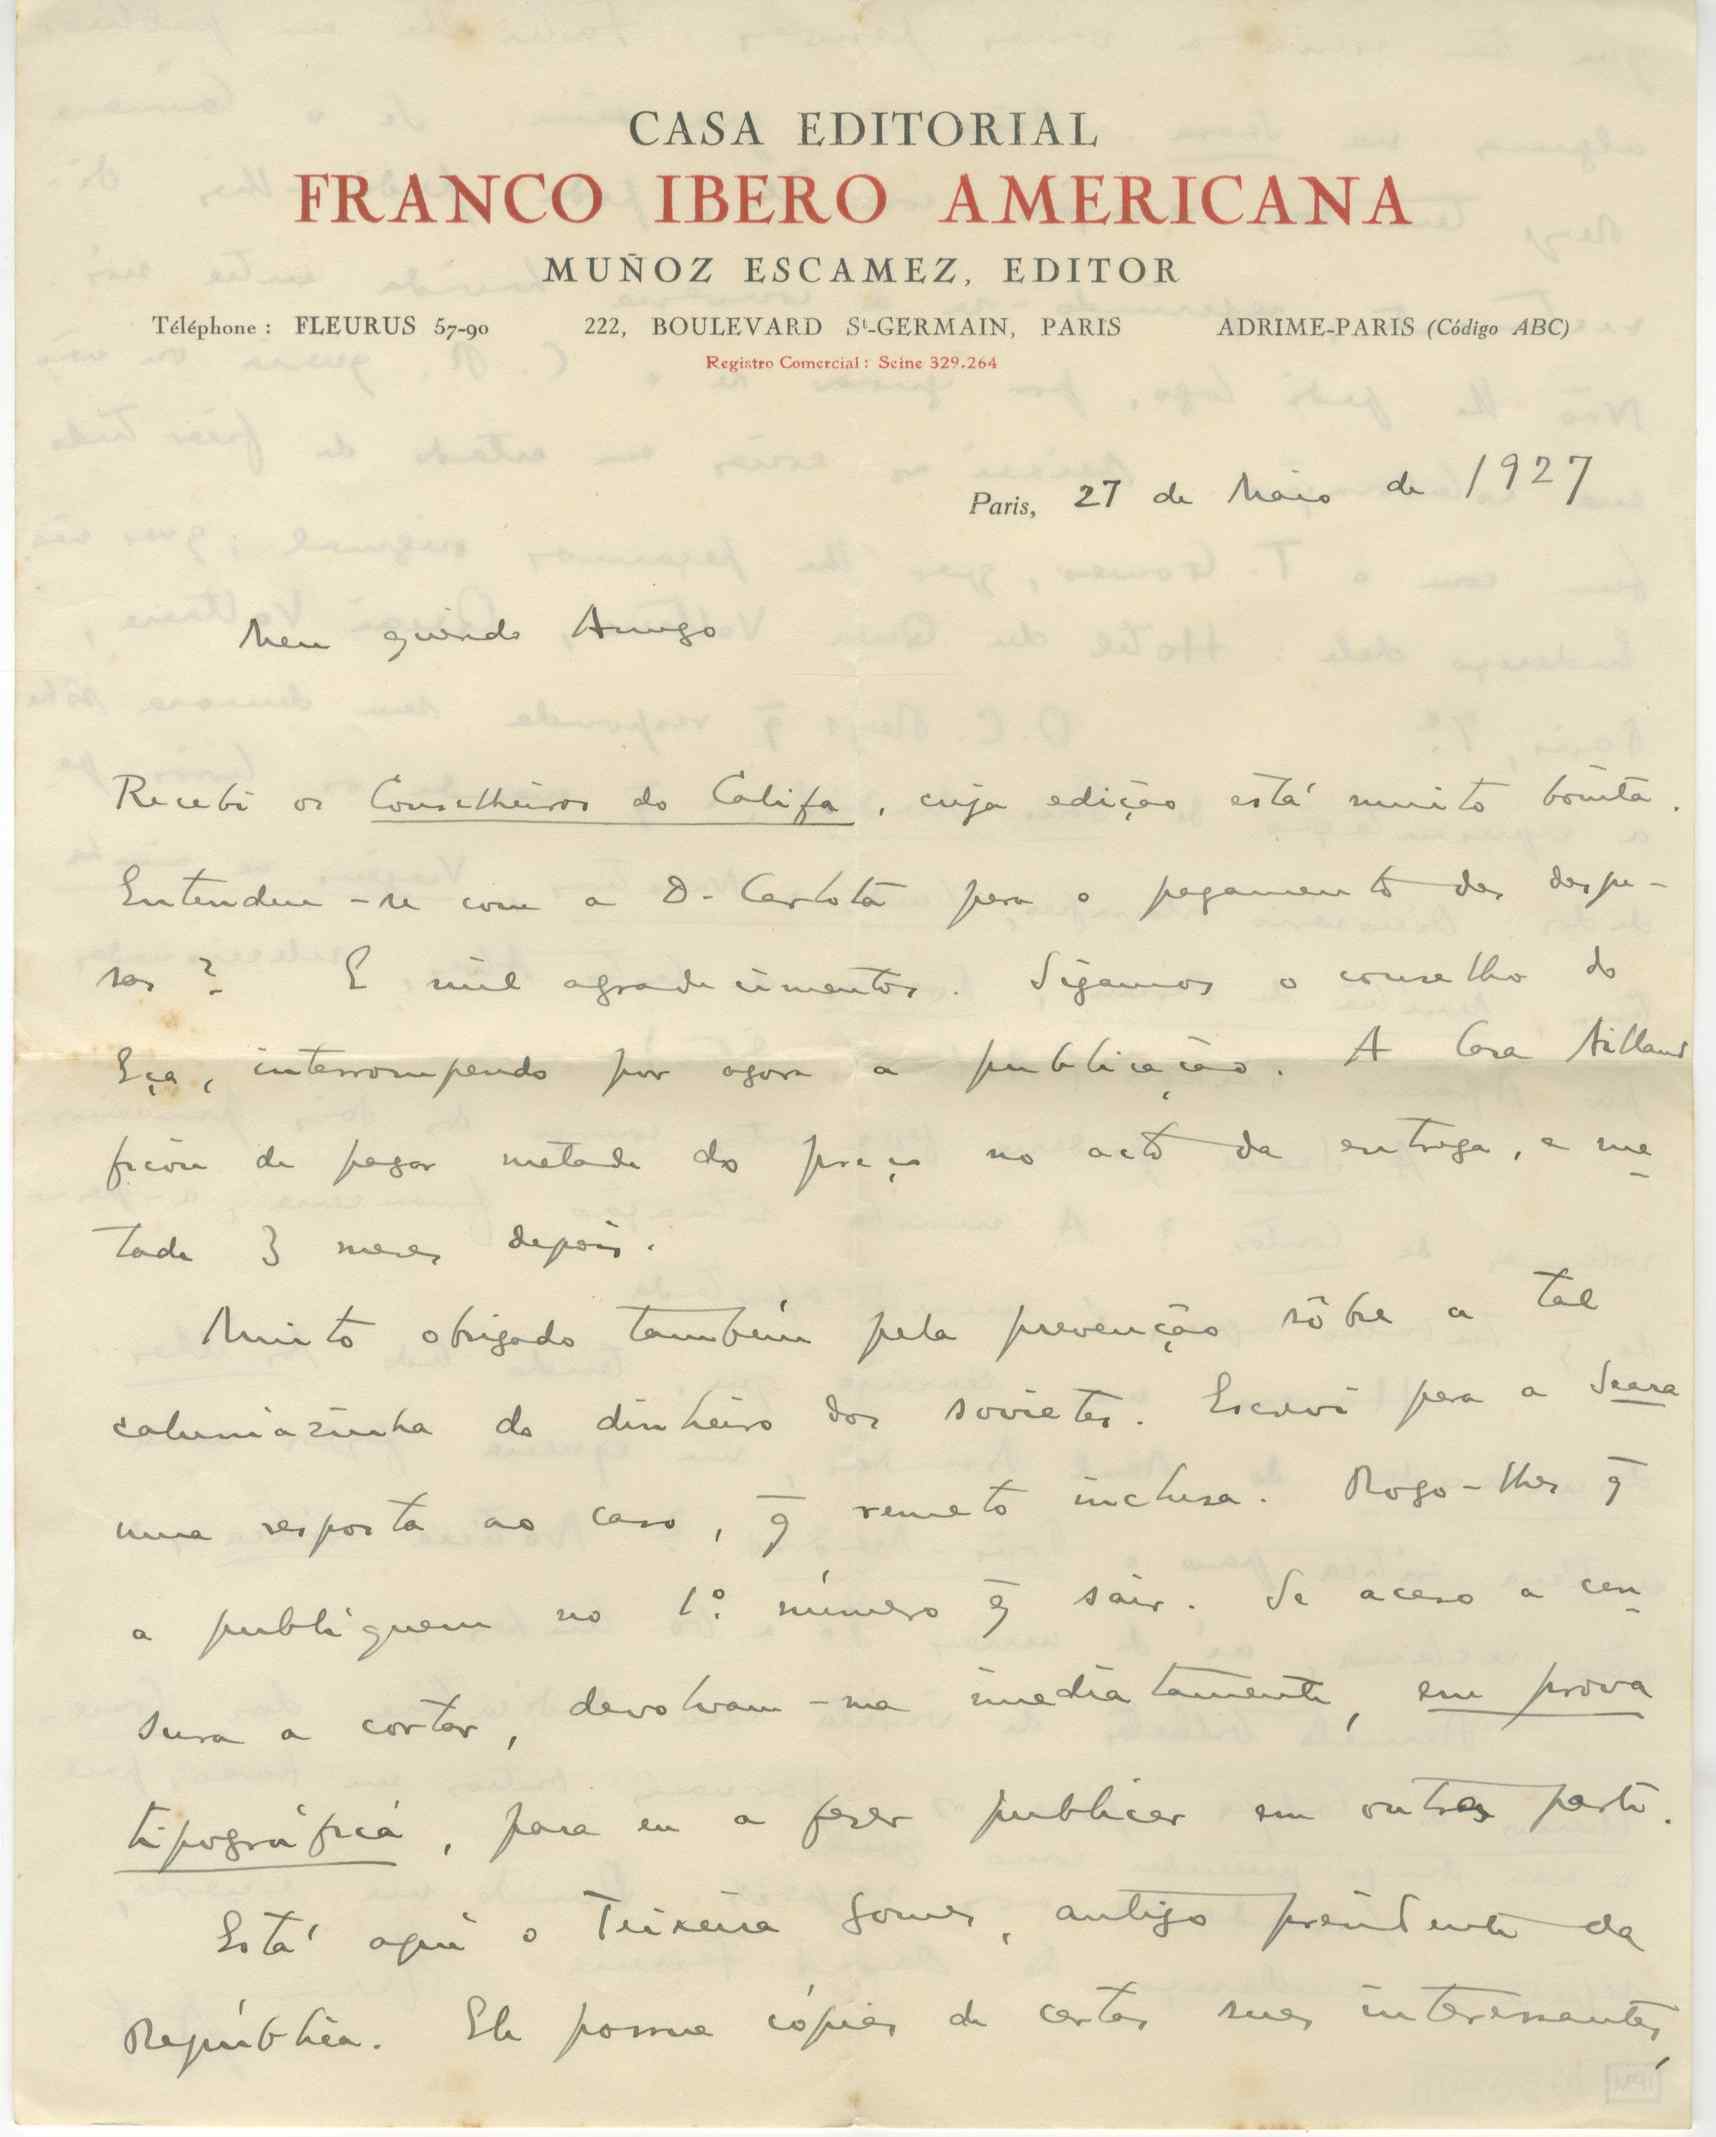 CASA EDITORIAL
FRANCO IBERO AMERICANA
MUÑOZ ESCAMEZ, EDITOR
Téléphone : FLEURUS 57-90 222, BOULEVARD St-GERMAIN, PARIS ADRIME-PARIS (Código ABC)
Registro Comercial : Seine 329.264
Paris, 27 de Maio de 1927
Meu querido Amigo
Recebi os Conselheiros do Califa, cuja edição está muito bonita.
Entendeu-se com a D. Carlota para o pagamento das despe-
sas? E mil agradecimentos. Sigamos o conselho do
Eça, interrompendo por agora a publicação. A Casa Aillaud
ficou de pagar metade do preço no acto da entrega, e me-
tade 3 meses depois.
Muito obrigado também pela prevenção sôbre a tal
caluniazinha do dinheiro dos sovietes. Escrevi para a Seara
uma resposta ao caso, q̄ remeto inclusa. Rogo-lhes q̄
a publiquem no 1º. número q̄ sair. Se acaso a cen-
sura a cortar, devolvam-ma imediatamente, em prova
tipográfica, para eu a fazer publicar em outra parte.
Está aqui o Teixeira Gomes, antigo presidente da
República. Ele possue cópias de cartas suas interessantes,